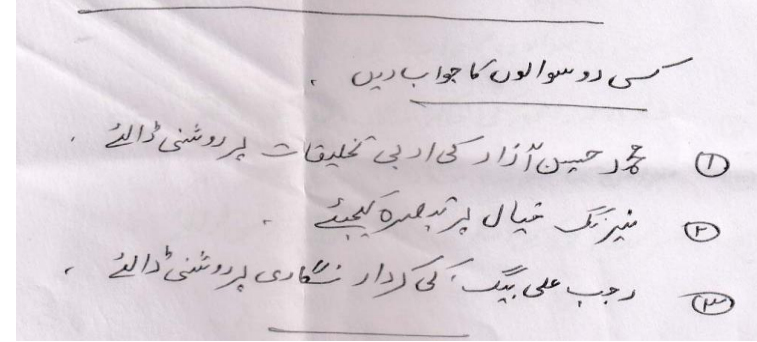 کسی دو سوالوں کا جواب دیں ۔
۱ محمد حسین آزاد کی ادبی تخلیقات پر روشنی ڈالئے ۔
۲ نیرنگ خیال پر تبصرہ کیجئے ۔
۳ رجب علی بیگ کی کردار نگاری پر روشنی ڈالئے ۔